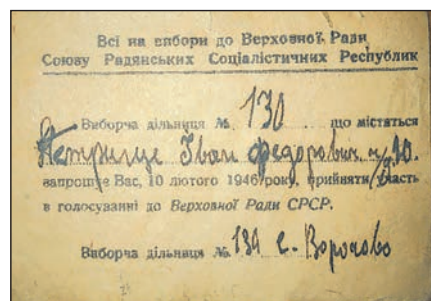 Всі на вибори до Верховної Ради
Союзу Радянських Соціалістичних Республик
Виборча дільниця № 130 що міститься
Іван Федорович
запрошує Вас, 10 лютого 1946 року, прийняти участь
в голосуванні до Верховної Ради СРСР.
Виборча дільниця № 130 с. Ворочово